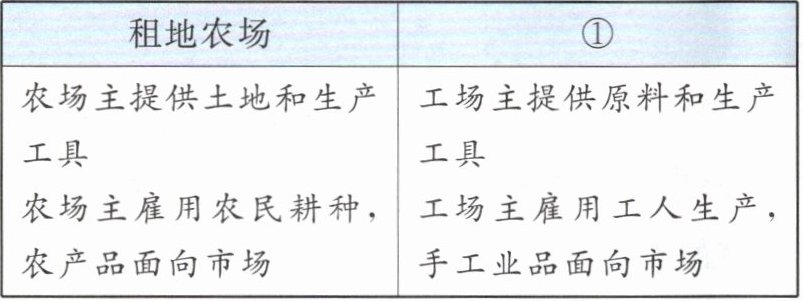 租地农场
①
农场主提供土地和生产
工具
农场主雇用农民耕种，
农产品面向市场
工场主提供原料和生产
工具
工场主雇用工人生产，
手工业品面向市场